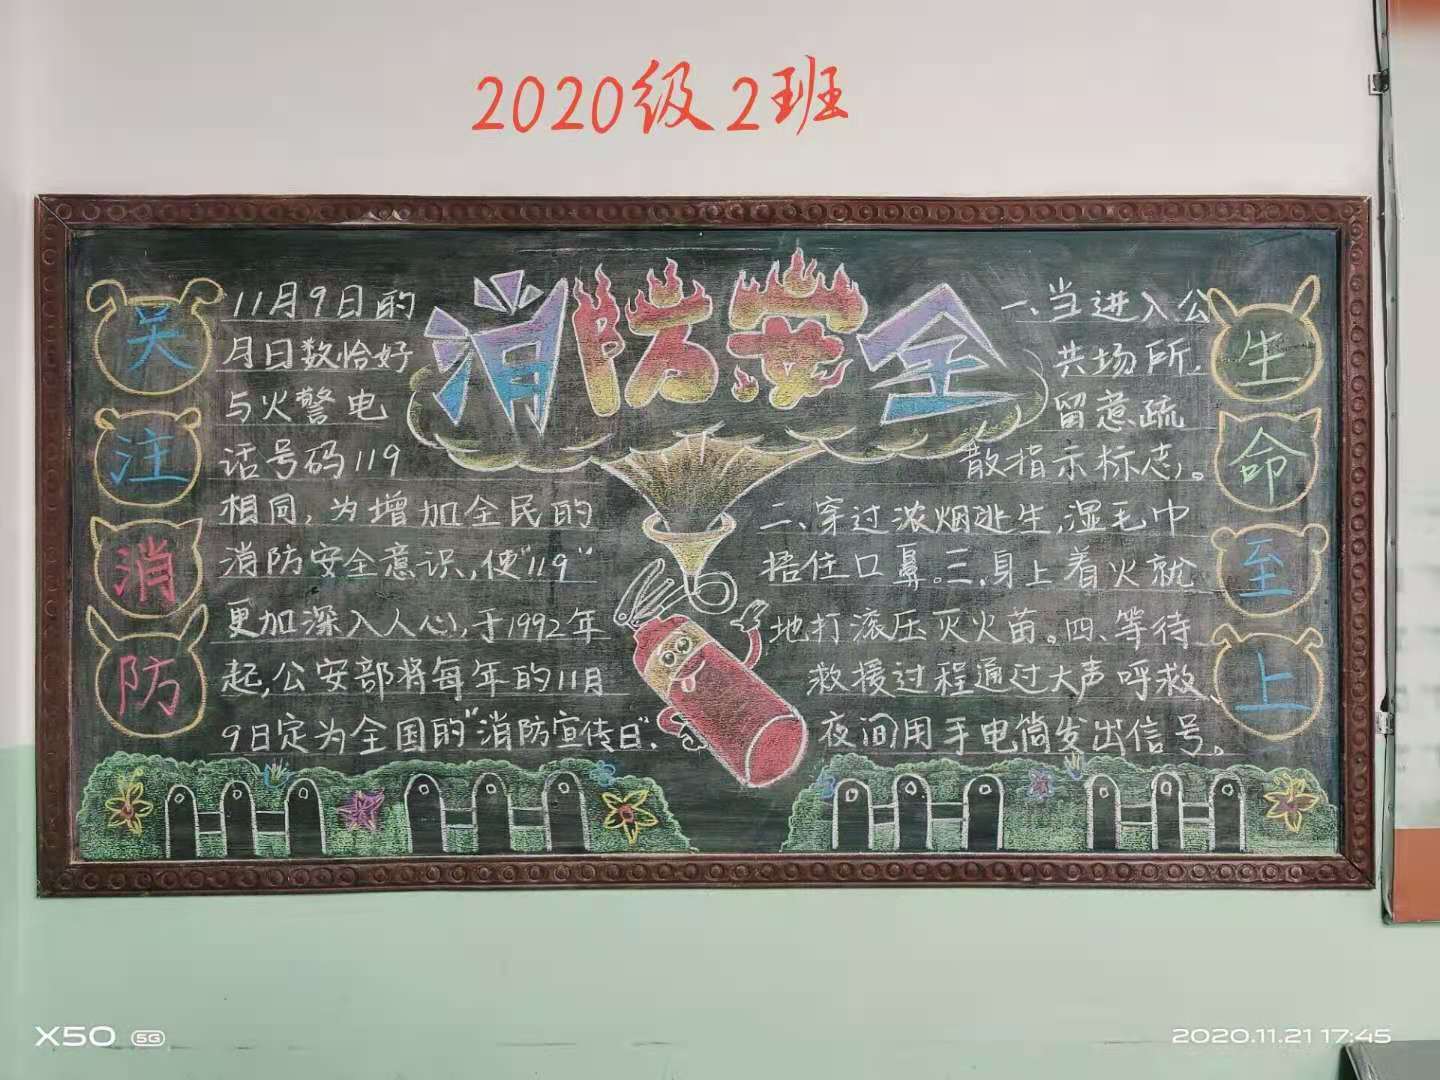 2020级2班
消防安全
关注消防
11月9日的
月日数恰好
与火警电
话号码119
相同，为增加全民的
消防安全意识，使"119"
更加深入人心，于1992年
起，公安部将每年的11月
9日定为全国的"消防宣传日"。
一、当进入公
共场所，
留意疏
散指示标志。
二、穿过浓烟逃生，湿毛巾
捂住口鼻。三、身上着火就
地打滚压灭火苗。四、等待
救援过程通过大声呼救、
夜间用手电筒发出信号。
生命至上
X50 5G
2020.11.21 17:45